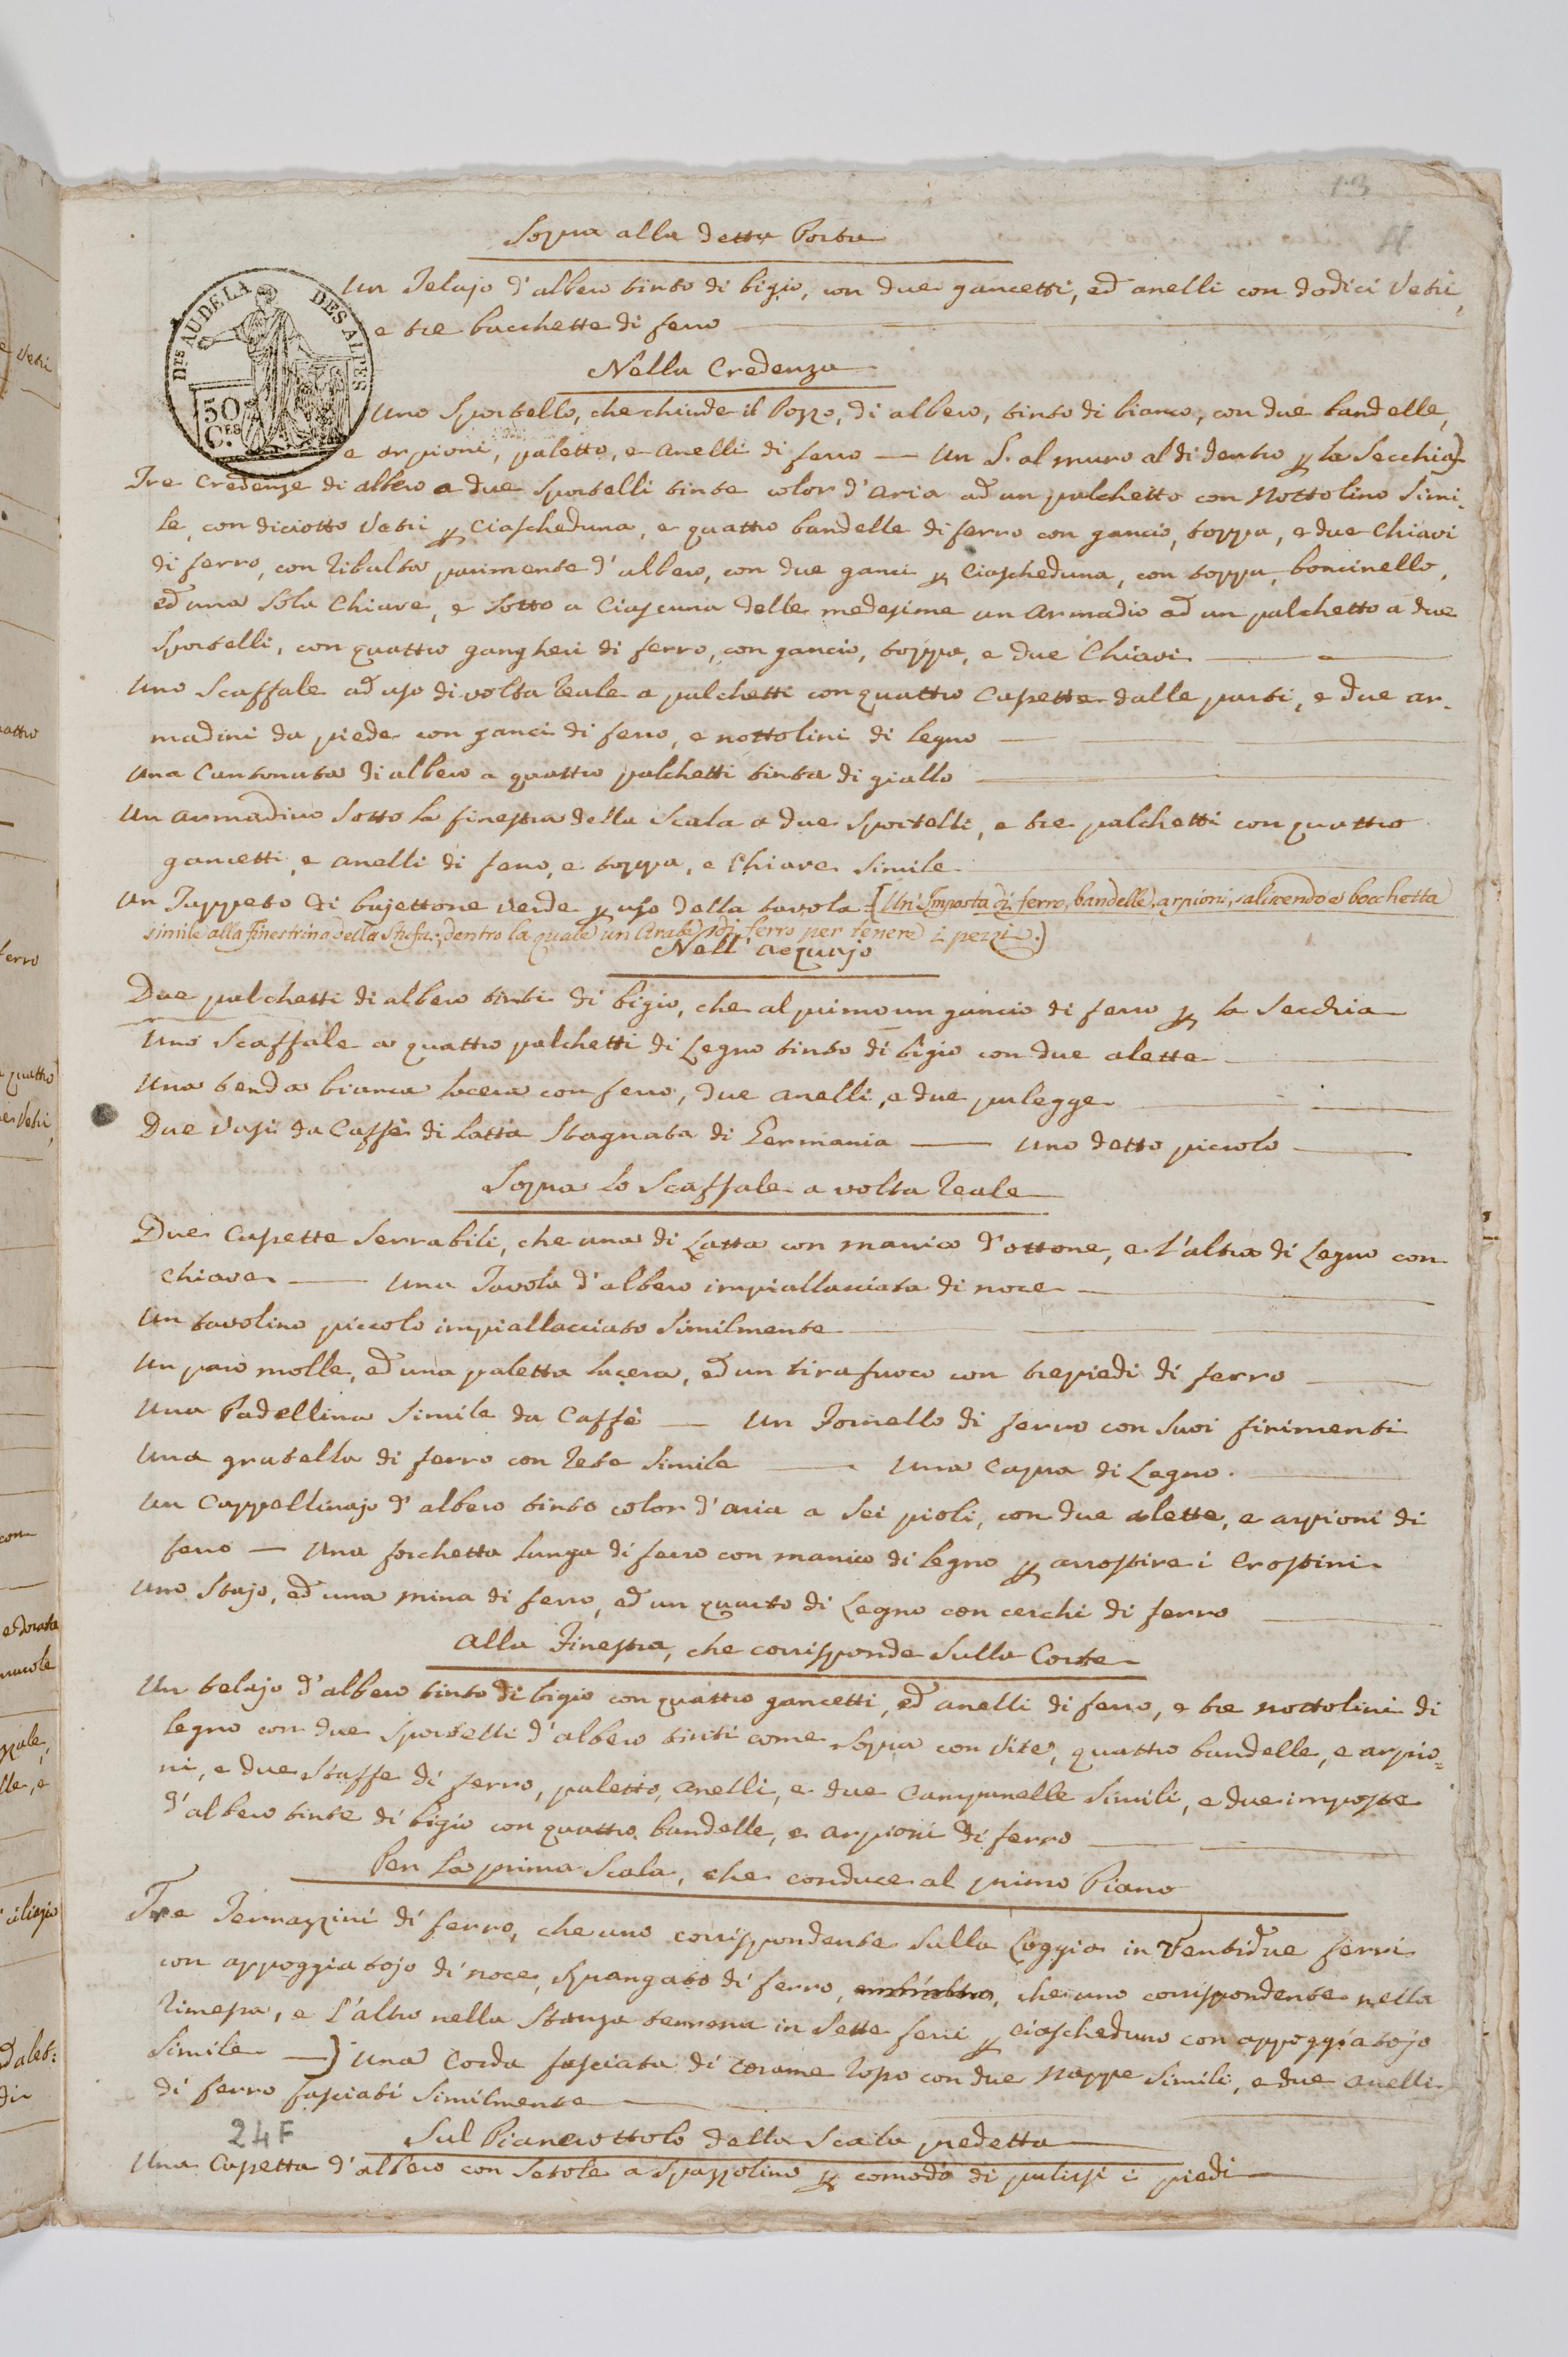 Sopra alla detta Porta
Un Telajo d'albero tinto di bigio, con due gancetti, ed anelli con dodici Vetri,
e tre bacchette di ferro
DES ALPES
DTS AU DELA
50 CES
Nella Credenza
Uno Sportello, che chiude il Pozzo, di albero, tinto di bianco, con due bandelle,
e arpioni, paletto, e anelli di ferro — Un S. al muro al di dentro p la Secchia)
Tre Credenze di albero a due Sportelli tinte color d'aria ad un palchetto con Nottolino Simi-
le, con diciotto Vetri p Ciascheduna, e quattro bandelle di ferro con gancio, toppa, e due Chiavi
di ferro, con Ribalta parimente d'albero, con due ganci p Ciascheduna, con toppa, boncinello,
ed una Sola Chiave, e Sotto a Ciascuna delle medesime un armadio ad un palchetto a due
Sportelli, con quattro gangheri di ferro, con gancio, toppa, e due Chiavi
Uno Scaffale ad uso di volta Reale a palchetti con quattro Casette dalle parti, e due ar-
madini da piede con ganci di ferro, e nottolini di legno
Una Cantonata di albero a quattro palchetti tinta di giallo
Un armadino Sotto la finestra della Scala a due Sportelli, e tre palchetti con quattro
gancetti, e anelli di ferro, e toppa, e Chiave Simile
Un Tappeto di bajettone verde p uso della tavola [Un'Imposta di ferro, bandelle, arpioni, saliscendo e bocchetta
simile alla finestrina della Stufa; dentro la quale un Arabe di ferro per tenere i pezzi.)
Nell' acquajo
Due palchetti di albero tinti di bigio, che al primo un gancio di ferro p la Secchia
Uno Scaffale a quattro palchetti di Legno tinto di bigio con due alette
Una tenda bianca lacera con ferro, due anelli, e due pulegge
Due Vasi da Caffè di Latta Stagnata di Germania — Uno detto piccolo
Sopra lo Scaffale a volta Reale
Due Casette Serrabili, che una di Latta con manico d'ottone, e l'altra di Legno con
Chiave — Una Tavola d'albero impiallacciata di noce
Un tavolino piccolo impiallacciato Similmente
Un paro molle, ed una paletta lacera, ed un tirafuoco con trepiedi di ferro
Una Padellina Simile da Caffè — Un Fornello di ferro con Suoi finimenti
Una gratella di ferro con Rete Simile — Una Capra di Legno.
Un Cappellinajo d'albero tinto color d'aria a Sei pioli, con due alette, e arpioni di
ferro — Una forchetta lunga di ferro con manico di legno p arrostire i Crostini
Uno Stajo, ed una mina di ferro, ed un quarto di Legno con cerchi di ferro
Alla Finestra, che corrisponde Sulla Corte
Un telajo d'albero tinto di bigio con quattro gancetti, ed anelli di ferro, e tre nottolini di
legno con due Sportelli d'albero tinti come Sopra con Vite, quattro bandelle, e arpio=
ni, e due Staffe di ferro, paletto, anelli, e due Campanelle Simili, e due imposte
d'albero tinte di bigio con quattro bandelle, e arpioni di ferro
Per la prima Scala, che conduce al primo Piano
Tre Terrazzini di ferro, che uno corrispondente Sulla Loggia in Ventidue ferri
con appoggiatojo di noce, Spangato di ferro, che uno corrispondente nella
Rimessa, e l'altro nella Stanza terrena in Sette ferri p ciascheduno con appoggiatojo
Simile —) Una Corda fasciata di corame Rosso con due Nappe Simili, e due anelli
di ferro fasciati Similmente
24F
Sul Pianerottolo della Scala predetta
Una Casetta d'albero con Setole a Spazzolino p comodo di pulirsi i piedi